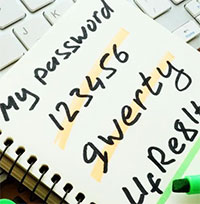 My password
123456
qwerty
UfRe8lt